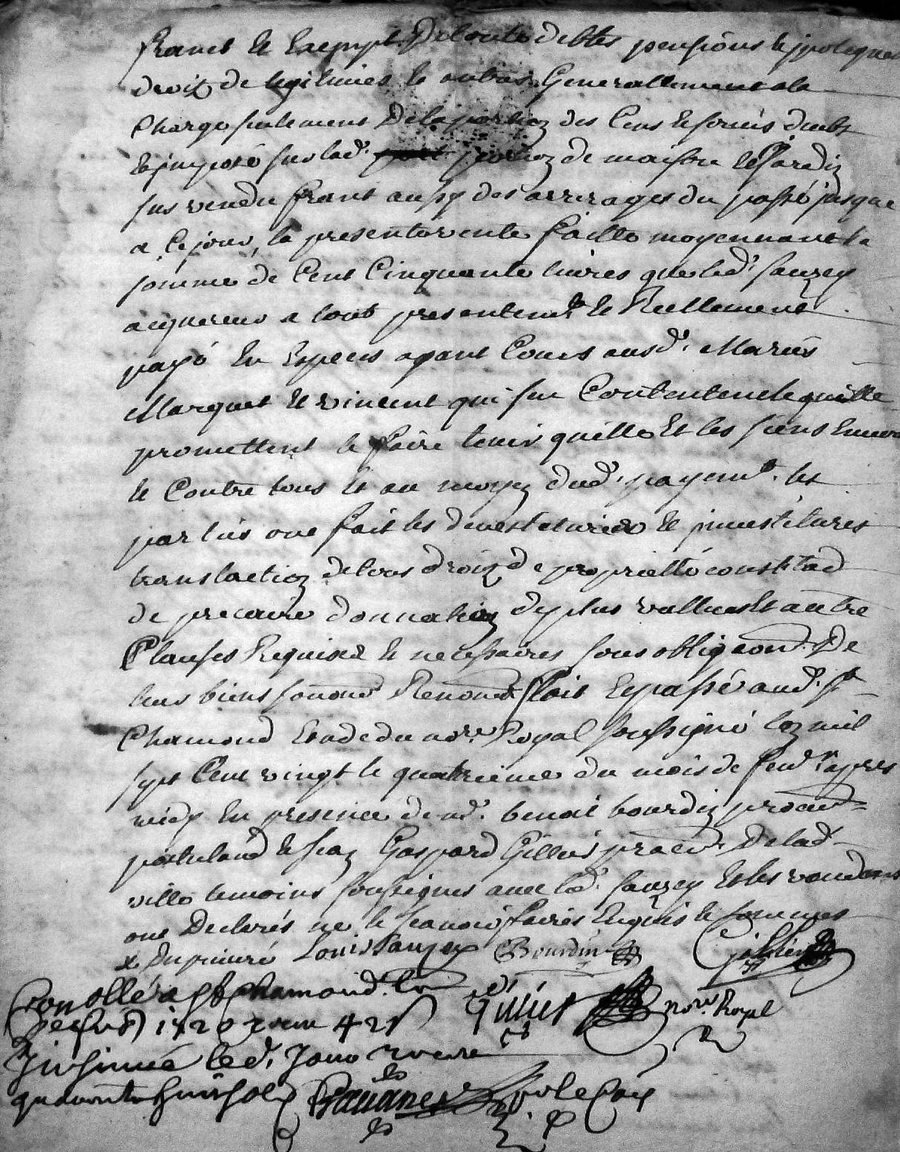 franct et exempt de toute debtes pensions hyppoteques
droit de legitimes et autres Generallement a la
charge seulement de la portion des Cens et servis deubt
et imposé sur lad. portion de maison et jardin
sus vendu franct aussy des arrerages du passé jusque
a ce jour, la presente vente faitte moyennant la
somme de Cent Cinquante livres que led. sauzey
acquereur a tout presentem.t et Reellement
payé en especes ayant Cours ausd. Mariés
Marquet et vincent qui s'en Contentent et quitte
promettent le faire tenir quitte Et les siens Envers
et Contre tous et au moyen dud. payem.t les
parties ont fait les devestitures et investitures
translaction de tous droit de propriette const.t ad
de precaire donnation de plus vallues Et autre
Clauses Requises et necessaires sous obliga.on De
leurs biens Renon.t fait et passé aud. S.t
Chamond Etude du no.re Royal soussigné l'an mil
sept Cent vingt le quatrieme du mois de fev.r apres
midy En presence de m.e benoit bourdin
postuland et jean Gaspard Gillier de lad.
ville temoins soussignes avec led. sauzey Et les vendeurs
ont Declarés ne le scavoir faire Enquis et sommes
Louis sauzey Bourdin Gillier
Conollé a S.t Chamond le
fev. 1720 42
Gillier no.re Royal
Insinué led. jour
quarante huit sols